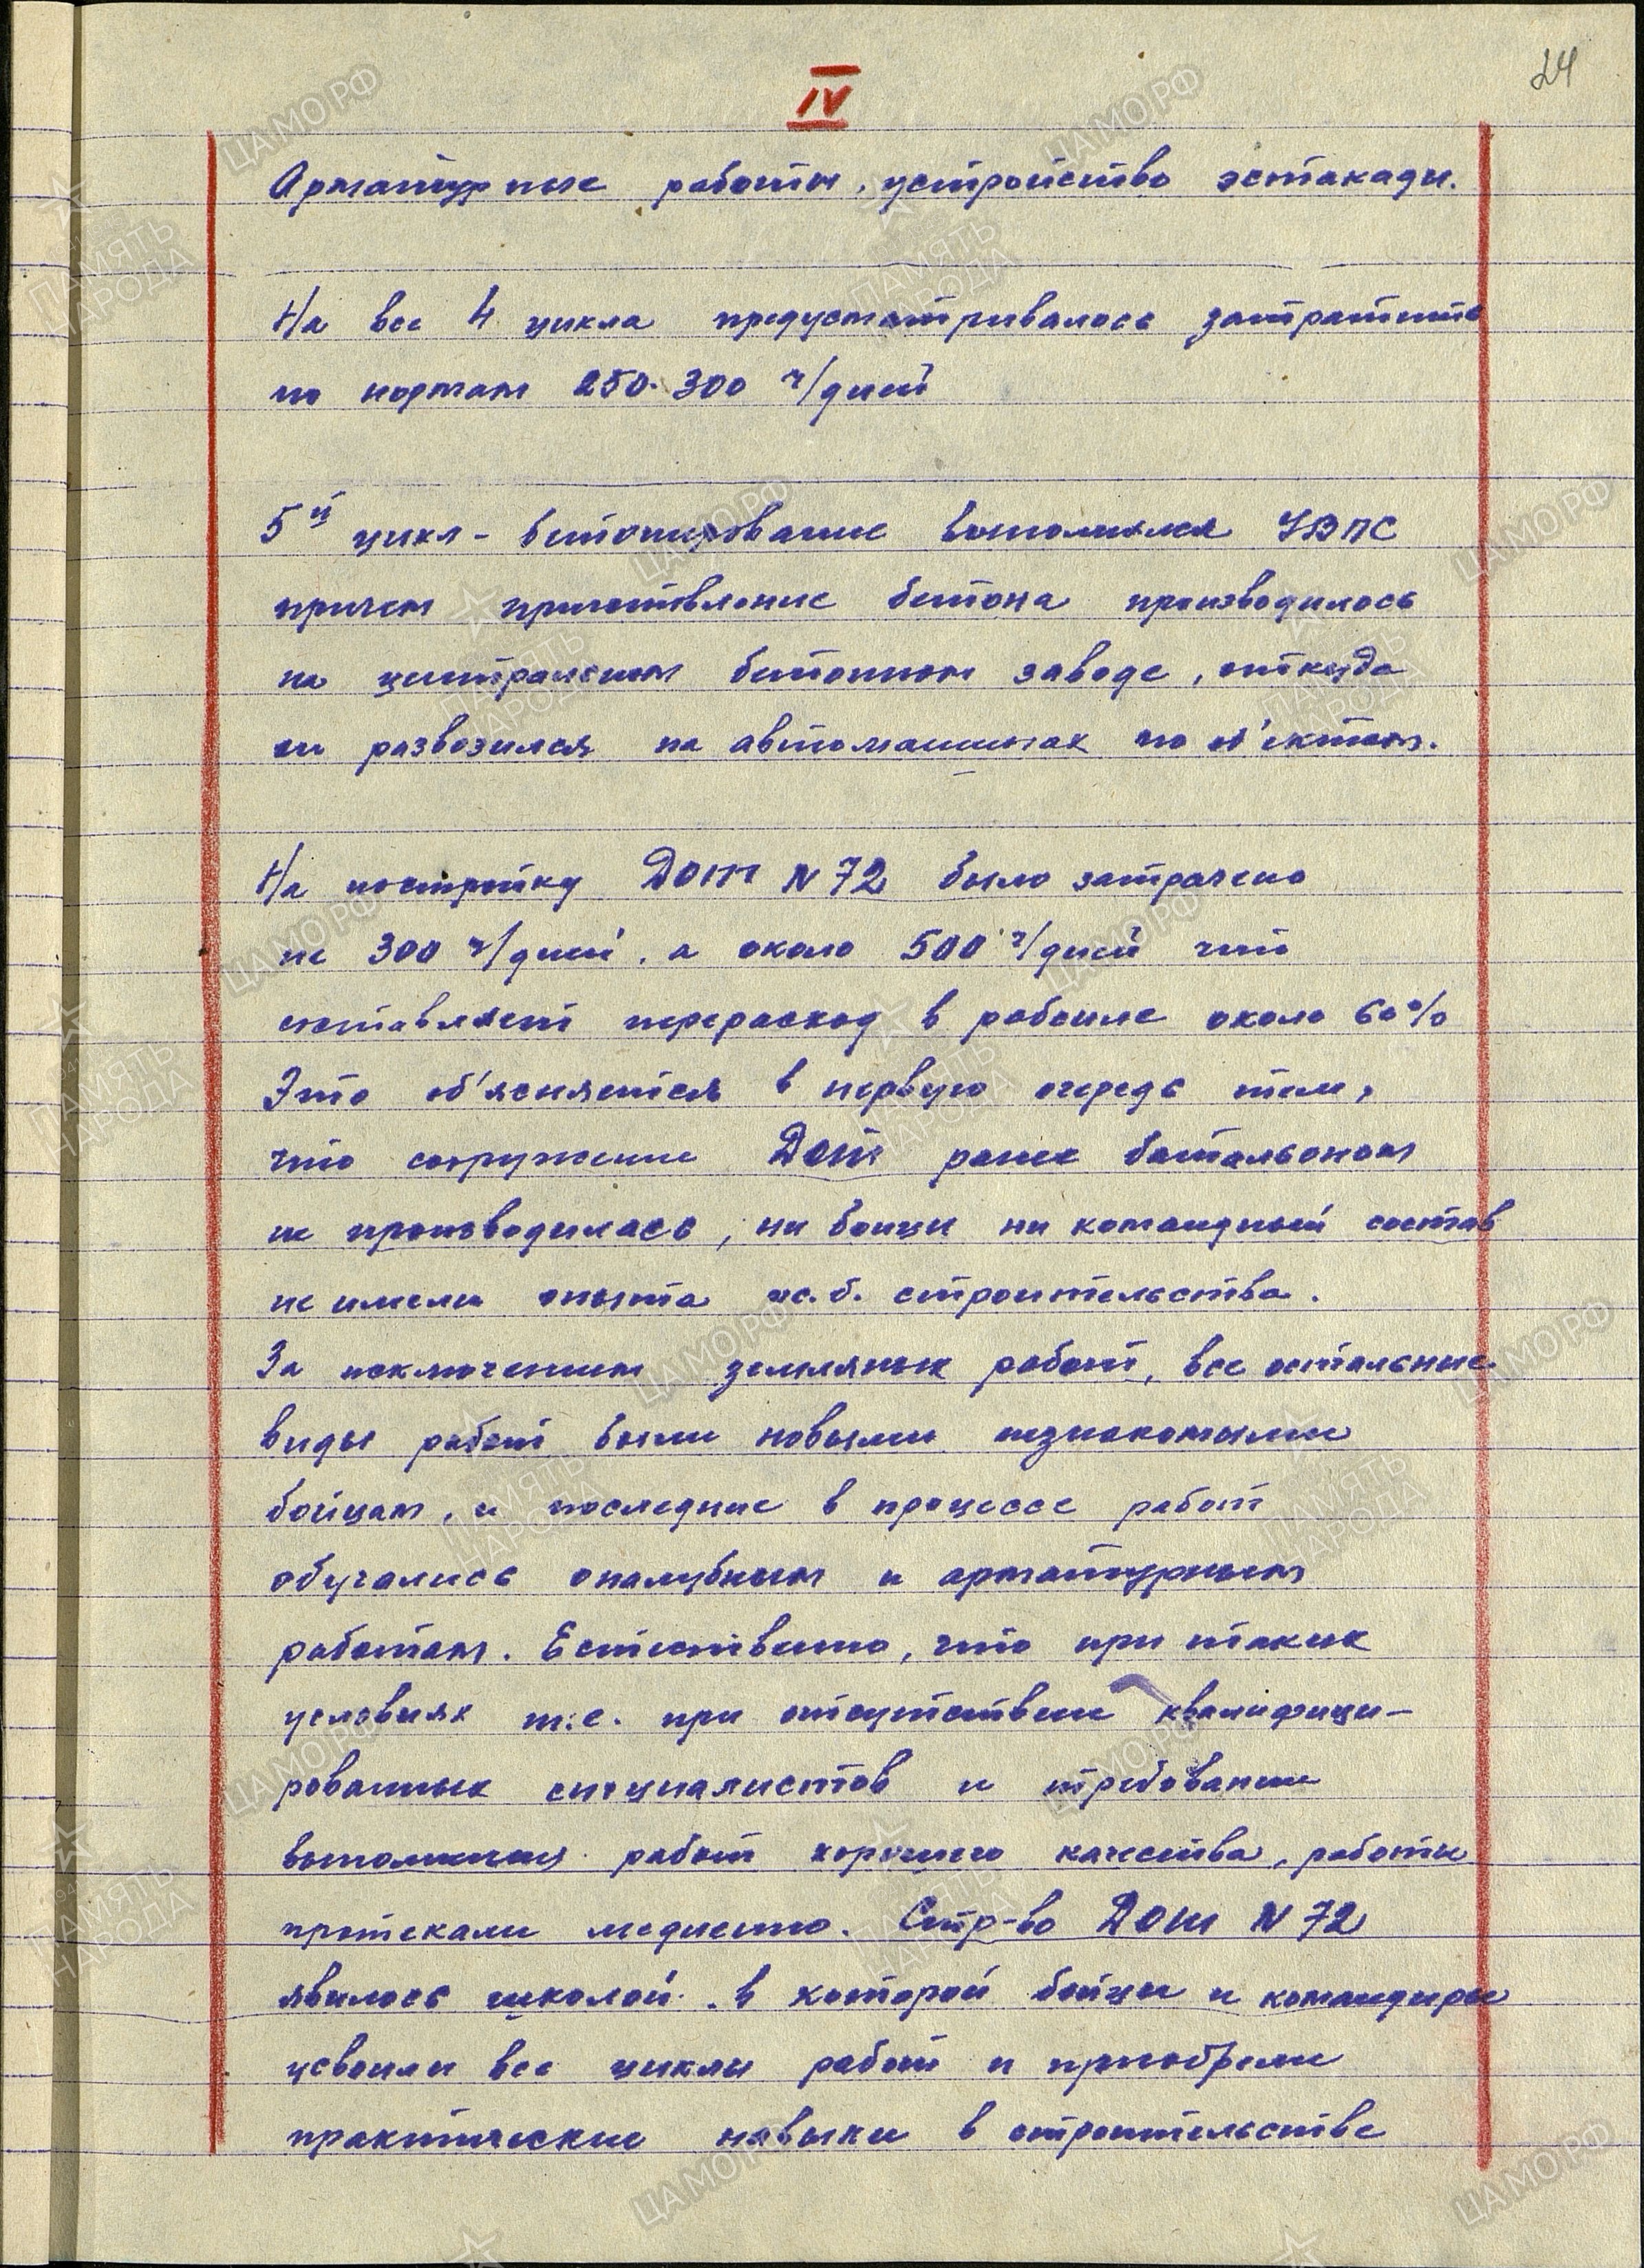 24
IV
Арматурные работы, устройство эстакады.
На все 4 цикла предусматривалось затратить
по нормам 250-300 ч/дней
5й цикл - бетонирование выполнялся УВПС
причем приготовление бетона производилось
на центральном бетонном заводе, откуда
он развозился на автомашинах по об'ектам.
На постройку Дот N 72 было затрачено
не 300 ч/дней, а около 500 ч/дней что
составляет перерасход в рабсиле около 60%
Это об'ясняется в первую очередь тем,
что сооружение Дот ранее батальоном
не производилась, ни бойцы ни командный состав
не имели опыта ж.б. строительства.
За исключением земляных работ, все остальные
виды работ были новыми незнакомыми
бойцам, и последние в процессе работ
обучались опалубным и арматурным
работам. Естественно, что при таких
условиях т.е. при отсутствии квалифици-
рованных специалистов и требовании
выполнения работ хорошего качества, работы
протекали медленно. Стр-во Дот N 72
явилось школой в которой бойцы и командиры
усвоили все циклы работ и приобрели
практические навыки в строительстве
ЦАМО.РФ
ПАМЯТЬ
НАРОДА